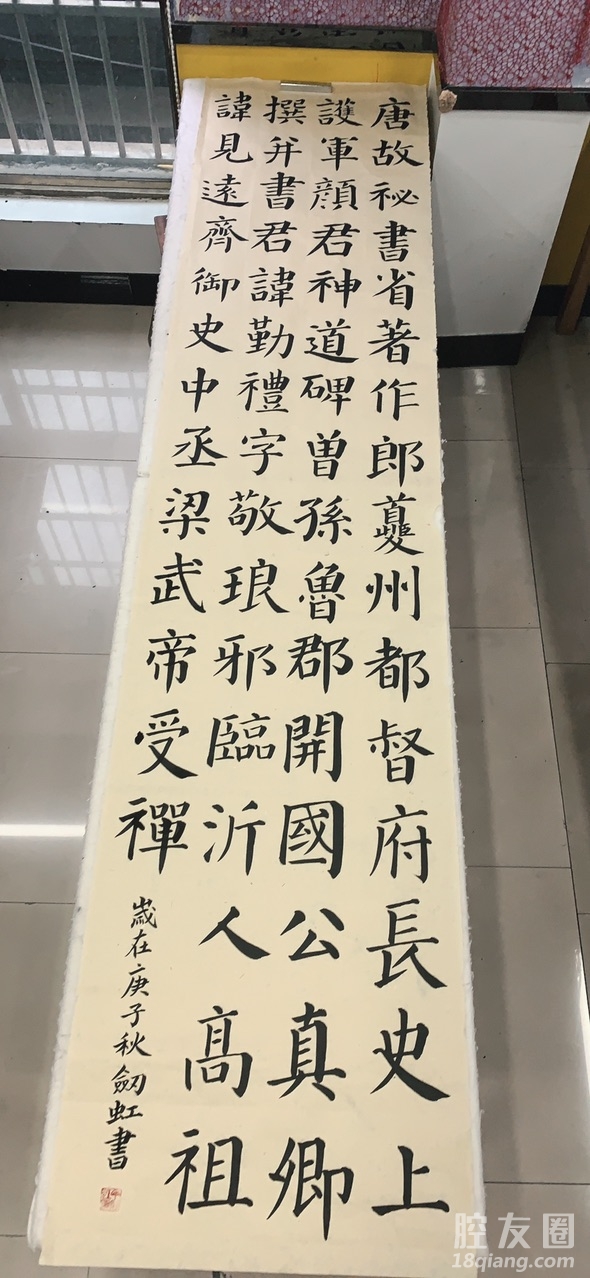 唐故祕書省著作郎夔州都督府長史上
護軍顏君神道碑曾孫魯郡開國公真卿
撰并書君諱勤禮字敬琅邪臨沂人高祖
諱見遠齊御史中丞梁武帝受禪
歲在庚子秋劍虹書
腔友圈
18qiang.com